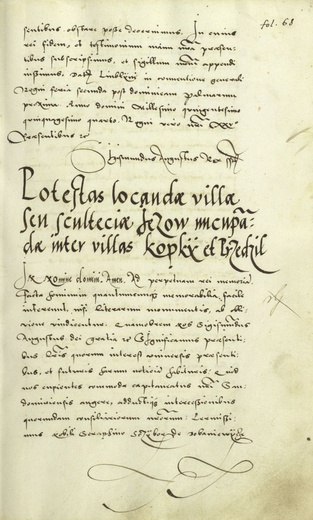 fol. 68
sentibus obstare posse decernimus. In cuius
rei fidem, et testimonium manu nostra praesen-
tibus subscripsimus, et sigillum nostrum appendi
iussimus. Datum Lublini in conventione generali
Regni feria secunda post dominicam Palmarum
proxima. Anno domini Millesimo quingentesimo
quinquagesimo quarto. Regni vero nostri XXV
Praesentibus etc
Sigismundus Augustus Rex sst
Potestas locandæ villæ
seu scultetiæ Jezow nuncupa-
dæ inter villas Kopky et
In Nomine domini Amen. Ad perpetuam rei memoriam
facta hominum quantumcunque memorabilia facile
intereunt, nisi literarum monumentis, ab obli-
vione vindicentur. Quamobrem nos Sigismundus
Augustus dei gratia etc Significamus praesenti-
bus literis quorum interest universis praesenti-
bus, et futuris harum notitiam habituris. Quod
nos cupientes commoda capitaneatus nostri San-
domiriensis augere, adductique intercessionibus
quorundam consiliariorum nostrorum: Permissi-
mus nobili Seraphino de